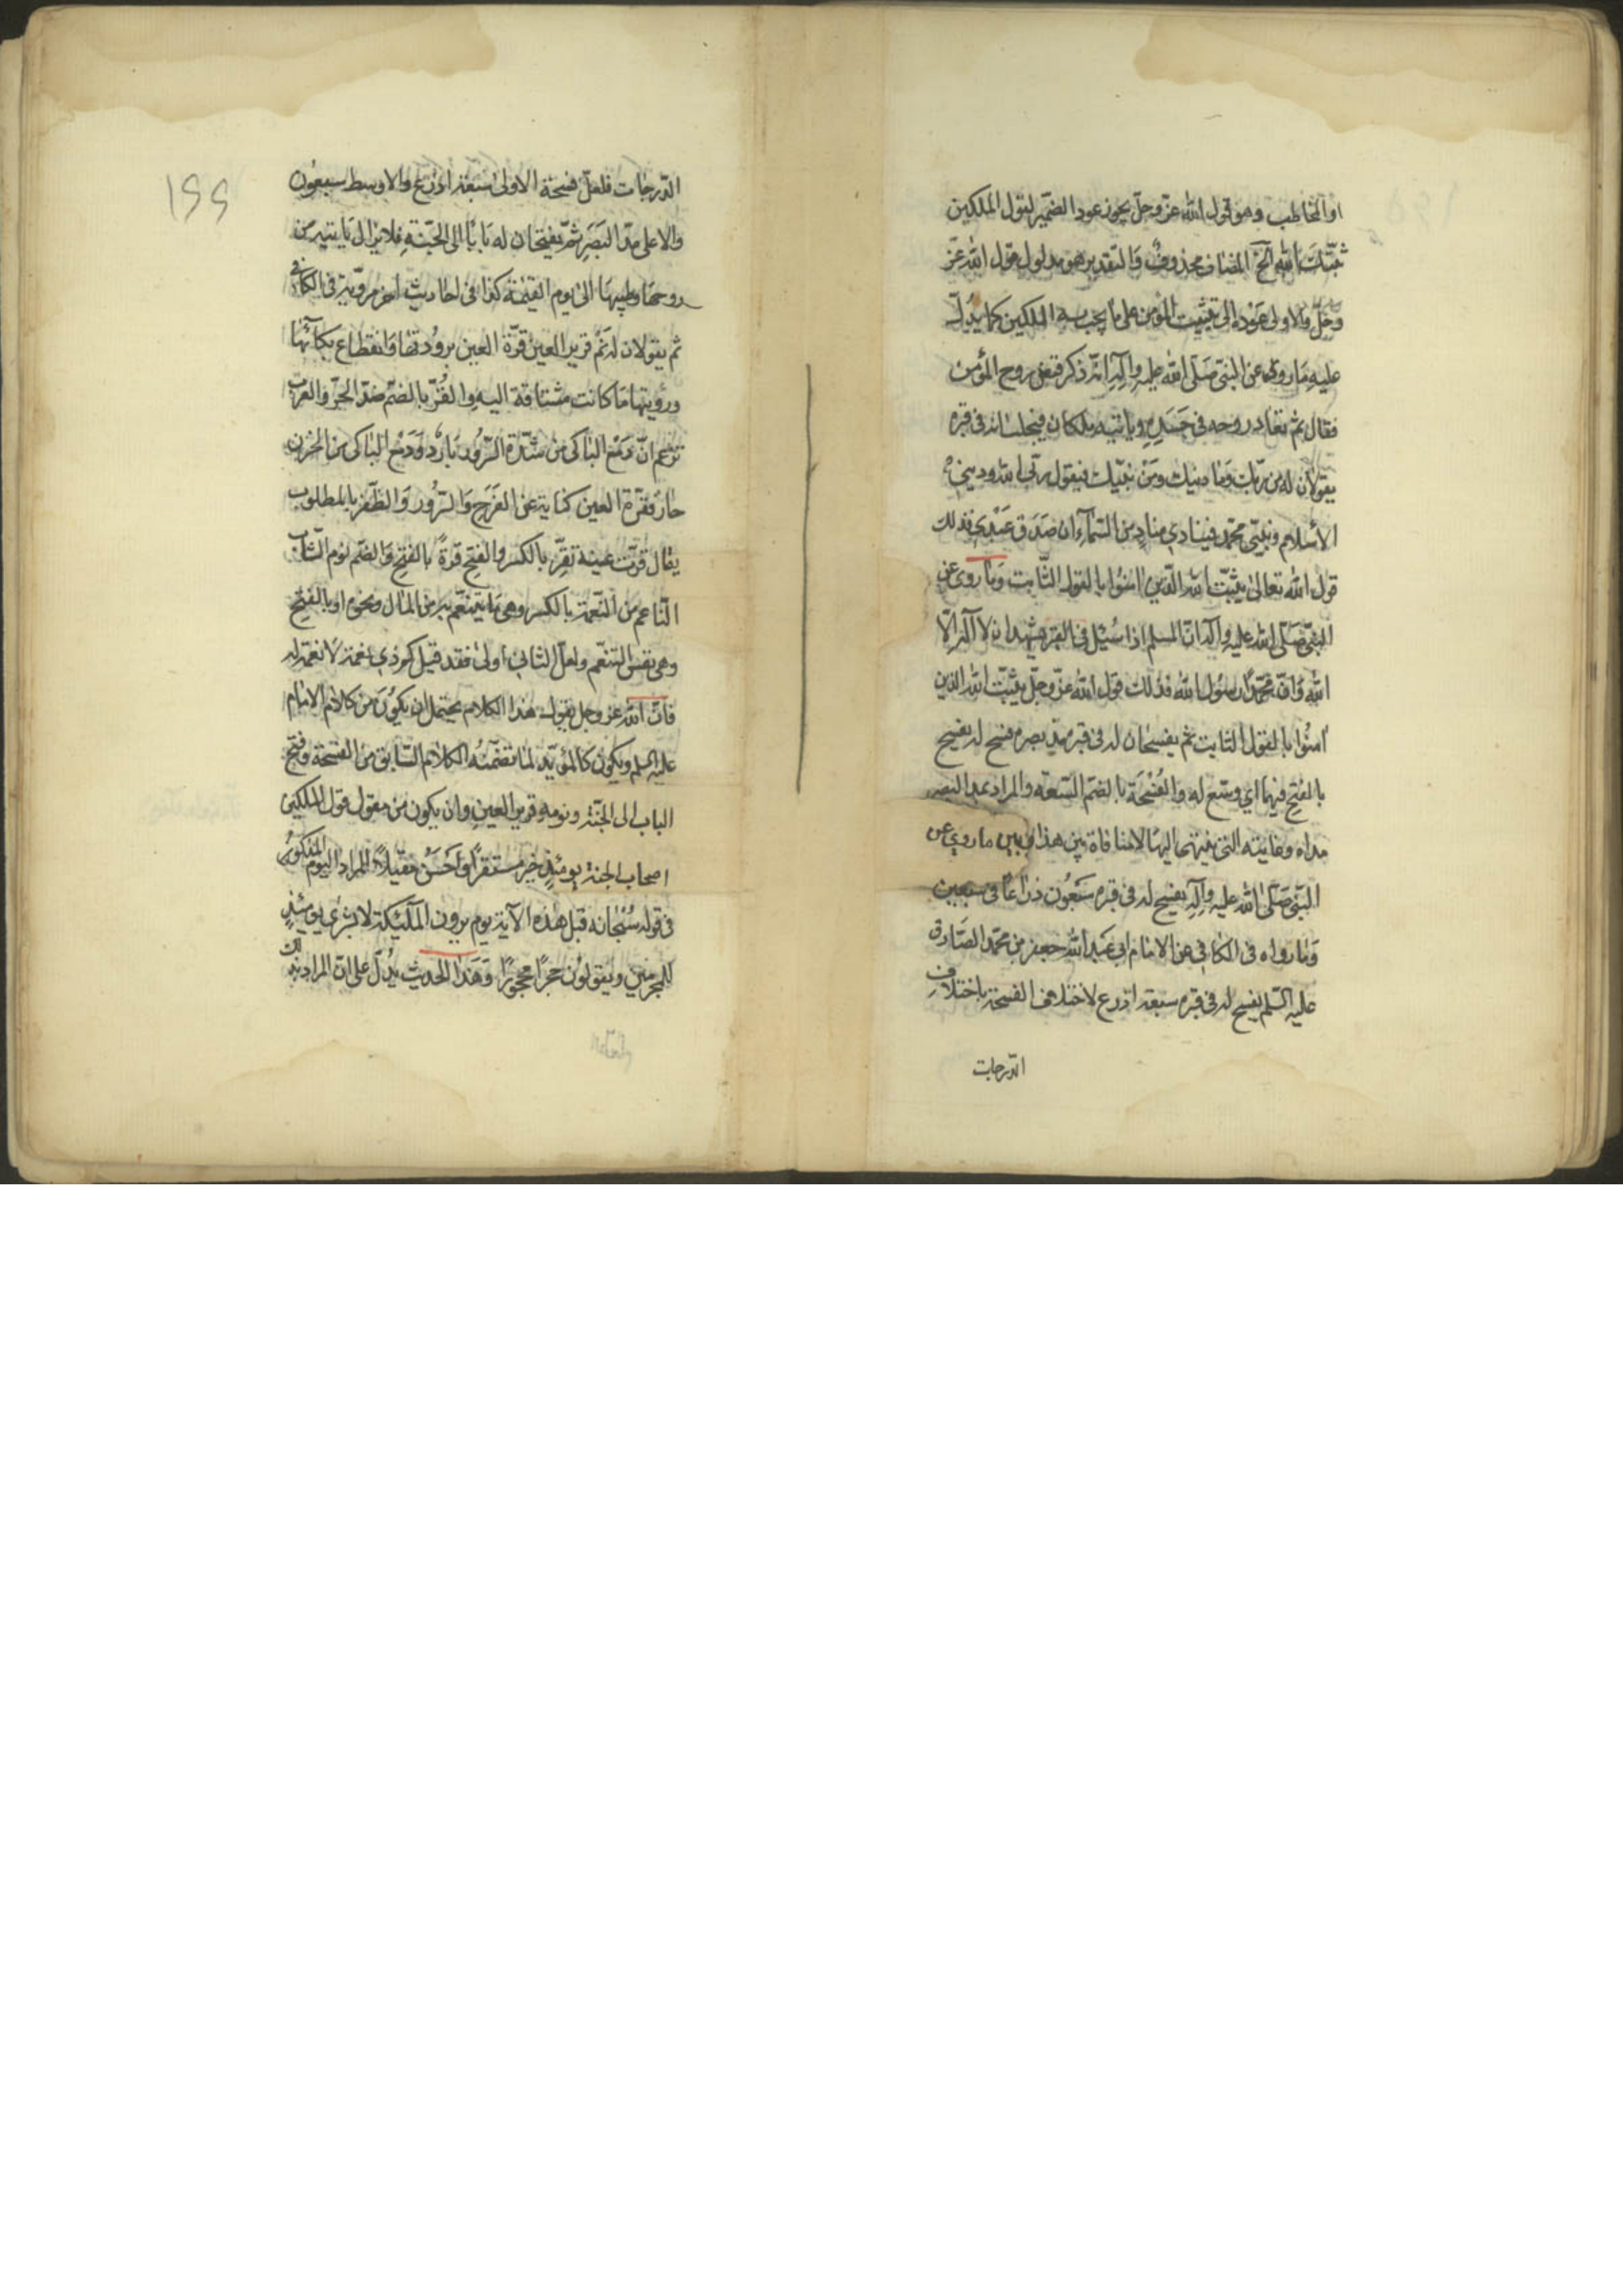 او المخاطب وهو قول الله عزّ وجلّ يجوز عود الضمير لقول الملكين
ثبّتك الله الخ المضاف محذوف والتقدير هو مدلول قول الله عزّ
وجلّ والاولى عوده الى تثبيت المؤمن على ما يجيب به الملكين كما يدلّ
عليه ما روى عن النبى صَلّى الله عليه وآلِه انّه ذكر قبض روح المؤمن
فقال ثم تعاد روحه فى جَسَدِهِ وياتيه ملكان فيجلسانه فى قبره
يقولان له من ربّك وَمَا دينك ومَنْ نبيّك فيقول ربّى الله ودينى
الاسلام ونبيّى محمّد فينادي منادٍ من السّمآء ان صَدَق عَبْدى فذلك
قول الله تعالى يثبّت الله الّذين امنوا بالقول الثّابت وَما روى عن
النبىّ صَلّى الله عليه وآله انّ المسلم اذا سُئِل فى القبر يشهد ان لا آله الّا
الله وَانّ محمّدًا رسُول الله فذلك قول الله عزّ وجلّ يثبّت الله الذين
امنُوا بالقول الثابت ثم يفسحان له فى قبره مدّ بصره فسح له يفسح
بالفتح فيهما اي وسّع له والفُسْحَة بالضمّ السّعة والمراد بمدّ البصر
مداه وغايته التى ينتهى اليها لا منافاة بين هذا وبين ما روي عن
النبّى صَلّى الله عليه وآلِه يفسح له فى قبره سَبْعُون ذراعًا فى سبعين
وَما رواه فى الكافى عن الامام ابى عَبد الله جعفر بن محمّد الصّادق
عليه السّلم يفسح له فى قبره سبعة اذرع لاختلاف الفسحة باختلاف
الدّرجات
١٢٢
الدّرجات فلعلّ فسحة الاولى سَبْعَة اذرُع والاوسط سبعُون
والاعلى مدّ البَصَرِ ثمّ يفتحان له بَابًا الى الجَنّةِ فلا يزال يَاتيه من
روحها وطيبها الى يوم القيمَة كذا فى احاديث اخر مرويّة فى الكافى
ثم يقولان له نَمْ قرير العين قرّة العين برُودتها وَانقطاع بكائها
ورؤيتها مَا كانت مشتاقة اليه والقُرّ بالضمّ ضدّ الحَرّ والعرب
تزعم انّ دَمْع الباكى من شدّة السّرُور بَارد وَدَمْع الباكى من الحزن
حارّ فقرّة العين كناية عن الفَرَح وَالسّرُور وَالظفر بالمطلوب
يقال قرّت عينه تقرّ بالكسر والفتح قرة بالفتح وَالضمّ نوم الشّابّ
النّاعم من النّعمة بالكسر وهى مَا يتنعّم به من المَال ونحوه او بالفتح
وهى نفس التنعّم ولعلّ الثانى اولى فقد قيل كم ذى نعمة لا نعمة له
فانّ الله عز وجل يقول هذا الكلام يحتمل ان يكُون من كلام الامام
عليه السلم ويكون كالمؤيّد لما تضمّنه الكلام السّابق من الفسحة وفتح
الباب الى الجنّة ونومه قرير العين وان يكون من مقول قول الملكين
اصحاب الجنة يومئذٍ خير مستقرًا واحسَن مقيلاً المراد اليوم المَذكور
فى قوله سُبْحانه قبل هذه الآية يوم يرون المَلئكة لا بشرى يومئذٍ
للمجرمين ويقولون حجرًا محجورًا وَهَذا الحديث يدُلّ على انّ المراد بذلك